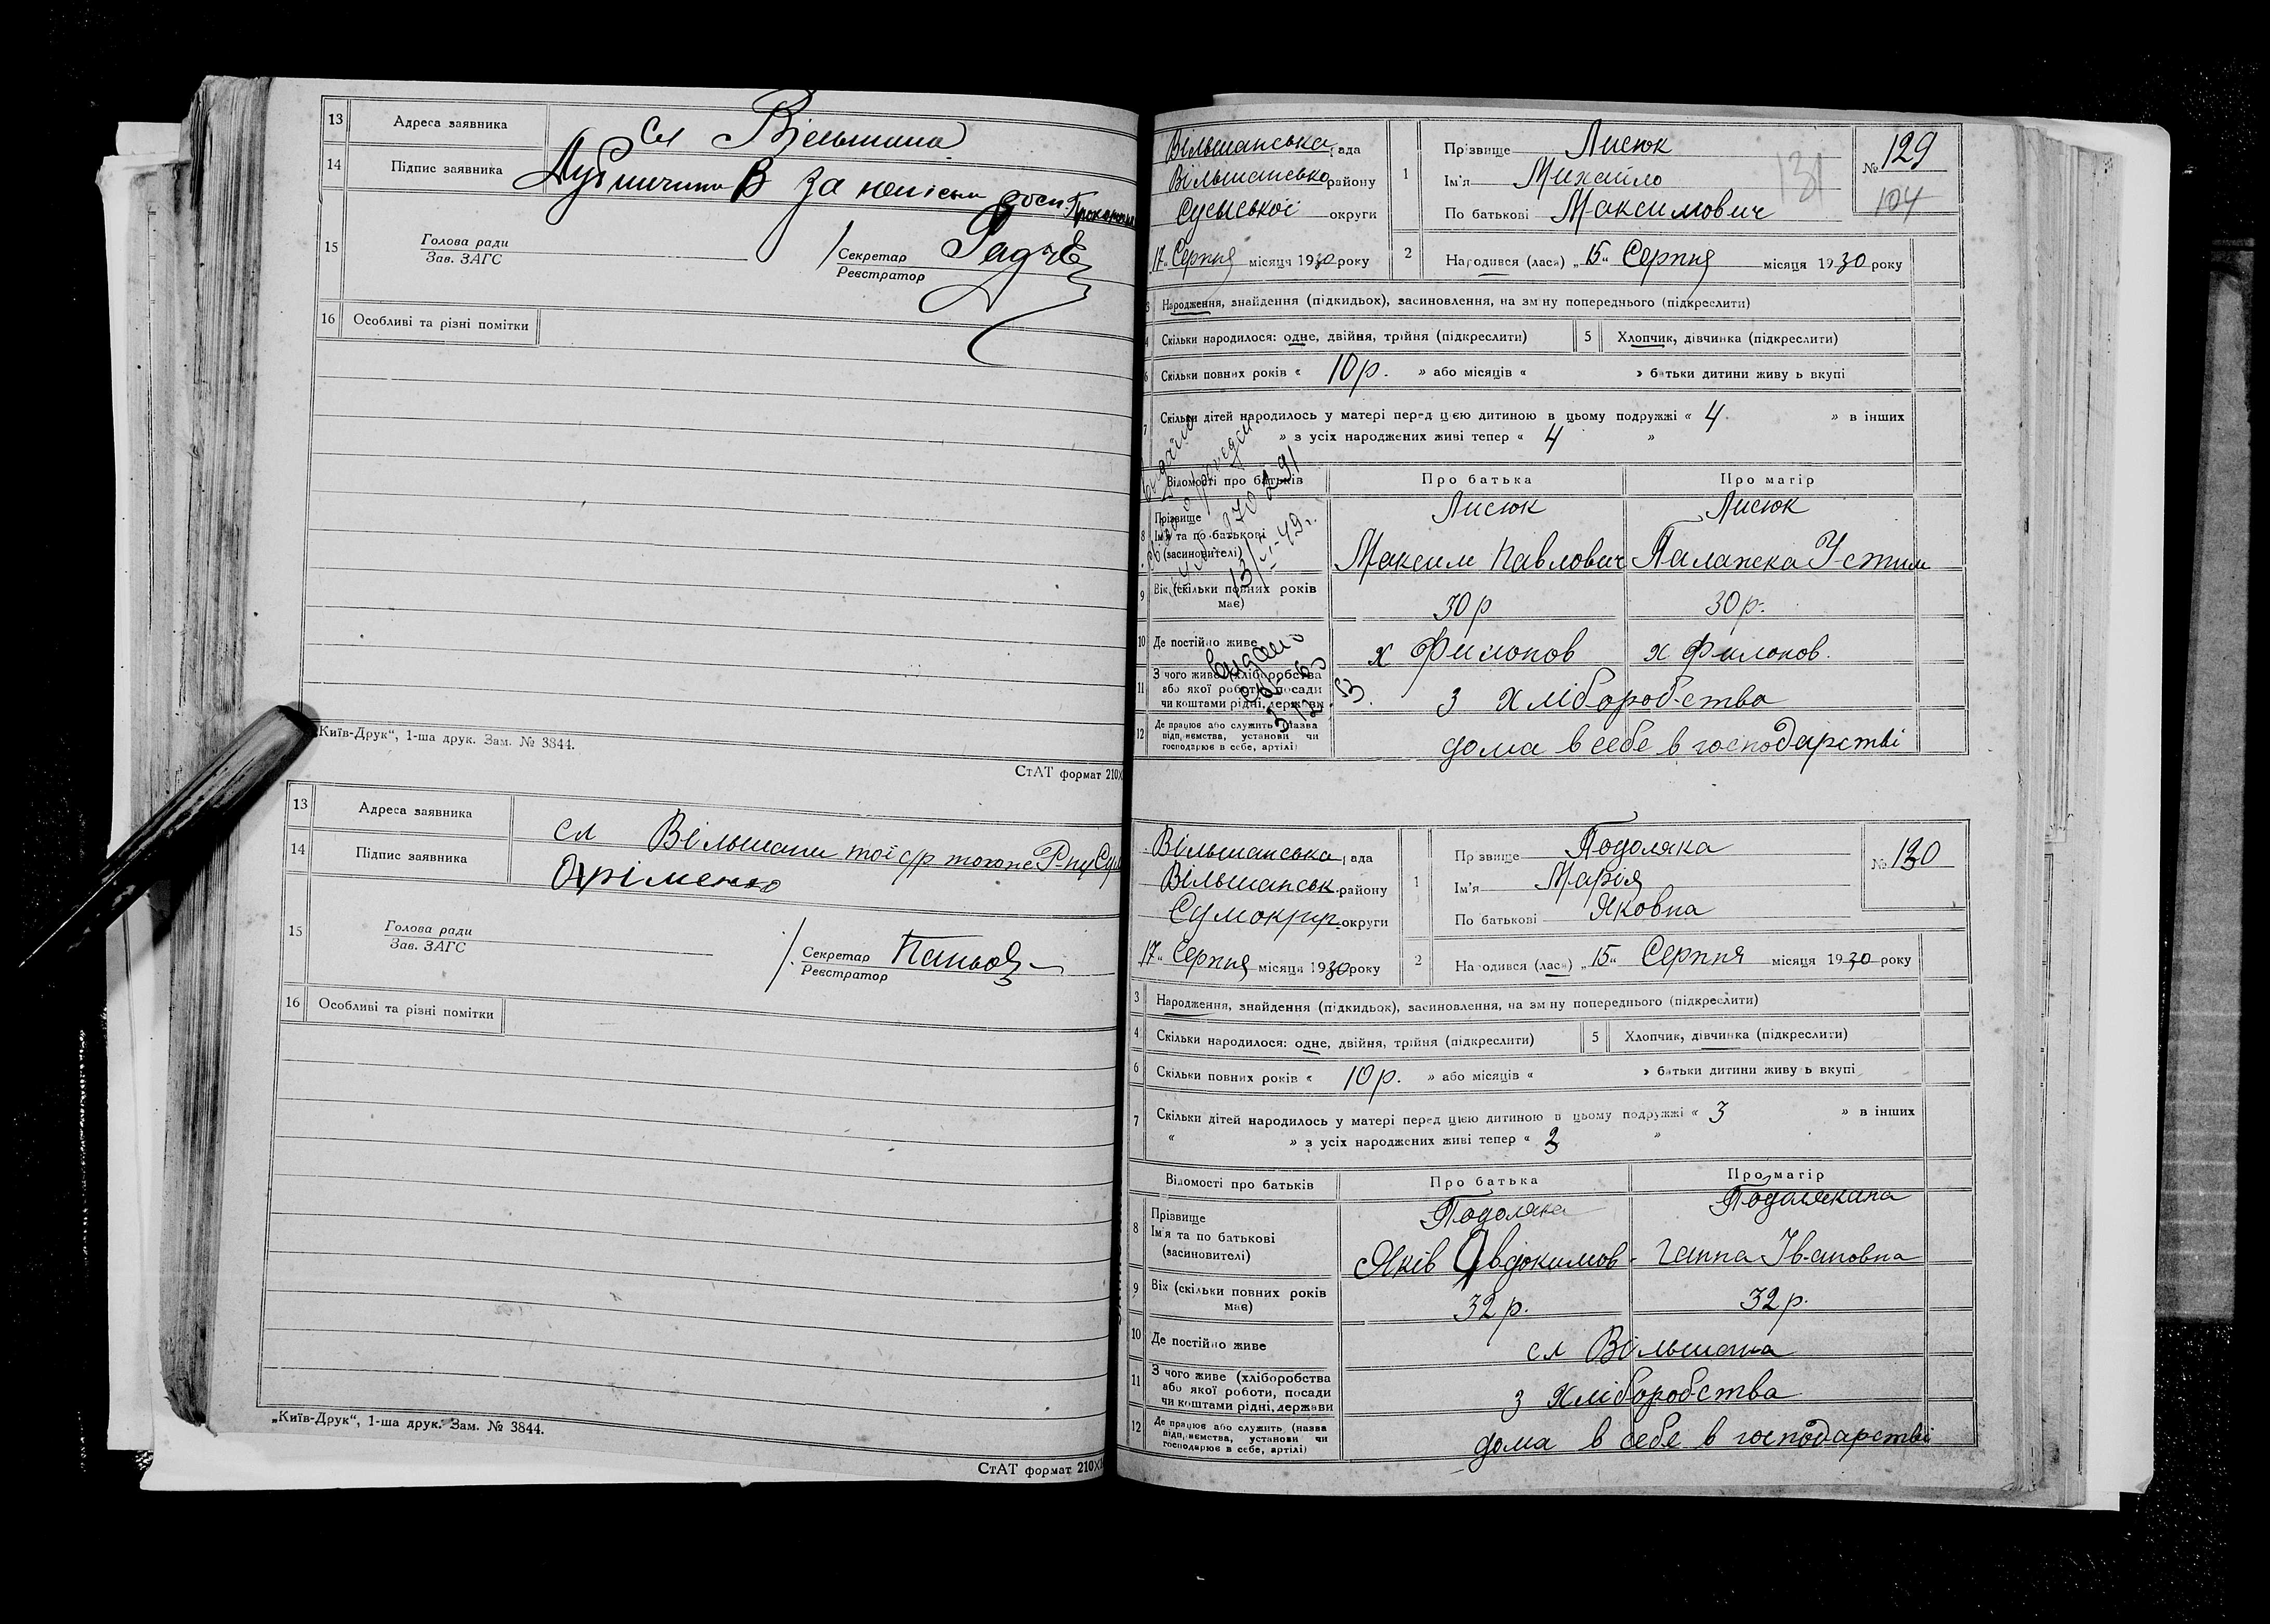 13 Адреса заявника сл Вільшана
14 Підпис заявника В за неписьм росп.
15 Голова ради
Зав. ЗАГС
Секретар
Реєстратор
16 Особливі та різні помітки
„Київ-Друк“, 1-ша друк. Зам. № 3844.
СтАТ формат 210X
13 Адреса заявника сл Вільшани тої с/р тогоже Р-ну Сум
14 Підпис заявника Охріменко
15 Голова ради
Зав. ЗАГС
Секретар
Реєстратор
16 Особливі та різні помітки
„Київ-Друк“, 1-ша друк. Зам. № 3844.
СтАТ формат 210X
Вільшанська рада
Вільшансько району
Сумської округи
17 Серпня місяця 1930 року
1 Прізвище Лисюк
Ім'я Михайло
По батькові Максимович
131
№ 129
104
2 Народився (лася) „15“ Серпня місяця 1930 року
3 Народження, знайдення (підкидьок), засиновлення, на зміну попереднього (підкреслити)
4 Скільки народилося: одне, двійня, трійня (підкреслити) 5 Хлопчик, дівчинка (підкреслити)
6 Скільки повних років « 10 р. » або місяців « » батьки дитини живуть вкупі
7 Скільки дітей народилось у матері перед цією дитиною в цьому подружжі « 4 » в інших
» з усіх народжених живі тепер « 4 »
Відомості про батьків Про батька Про матір
8 Прізвище
Ім'я та по батькові
(засновителі)
Лисюк Лисюк
Максим Павлович Палажка Устим
9 Вік (скільки повних років має) 30 р 30 р.
10 Де постійно живе х Филонов х Филонов.
11 З чого живе (хліборобства
або якої роботи, посади
чи коштами рідні, держави
з хліборобства
12 Де працює або служить (назва
підприємства, установи чи
господарює в себе, артілі)
дома в себе в господарстві
Вільшанська рада
Вільшанськ. району
Сумокруг. округи
17 Серпня місяця 1930 року
1 Прізвище Подоляка
Ім'я Марія
По батькові Яковна
№ 130
2 Народився (лася) „15“ Серпня місяця 1930 року
3 Народження, знайдення (підкидьок), засиновлення, на зміну попереднього (підкреслити)
4 Скільки народилося: одне, двійня, трійня (підкреслити) 5 Хлопчик, дівчинка (підкреслити)
6 Скільки повних років « 10 р. » або місяців « » батьки дитини живуть вкупі
7 Скільки дітей народилось у матері перед цією дитиною в цьому подружжі « 3 » в інших
« » з усіх народжених живі тепер « »
Відомості про батьків Про батька Про матір
8 Прізвище
Ім'я та по батькові
(засиновителі)
Подоляка Подолякина
Яків Явдокимов. Ганна Івановна
9 Вік (скільки повних років має) 32 р. 32 р.
10 Де постійно живе сл Вільшана
11 З чого живе (хліборобства
або якої роботи, посади
чи коштами рідні, держави
з хліборобства
12 Де працює або служить (назва
підприємства, установи чи
господарює в себе, артілі)
дома в себе в господарстві